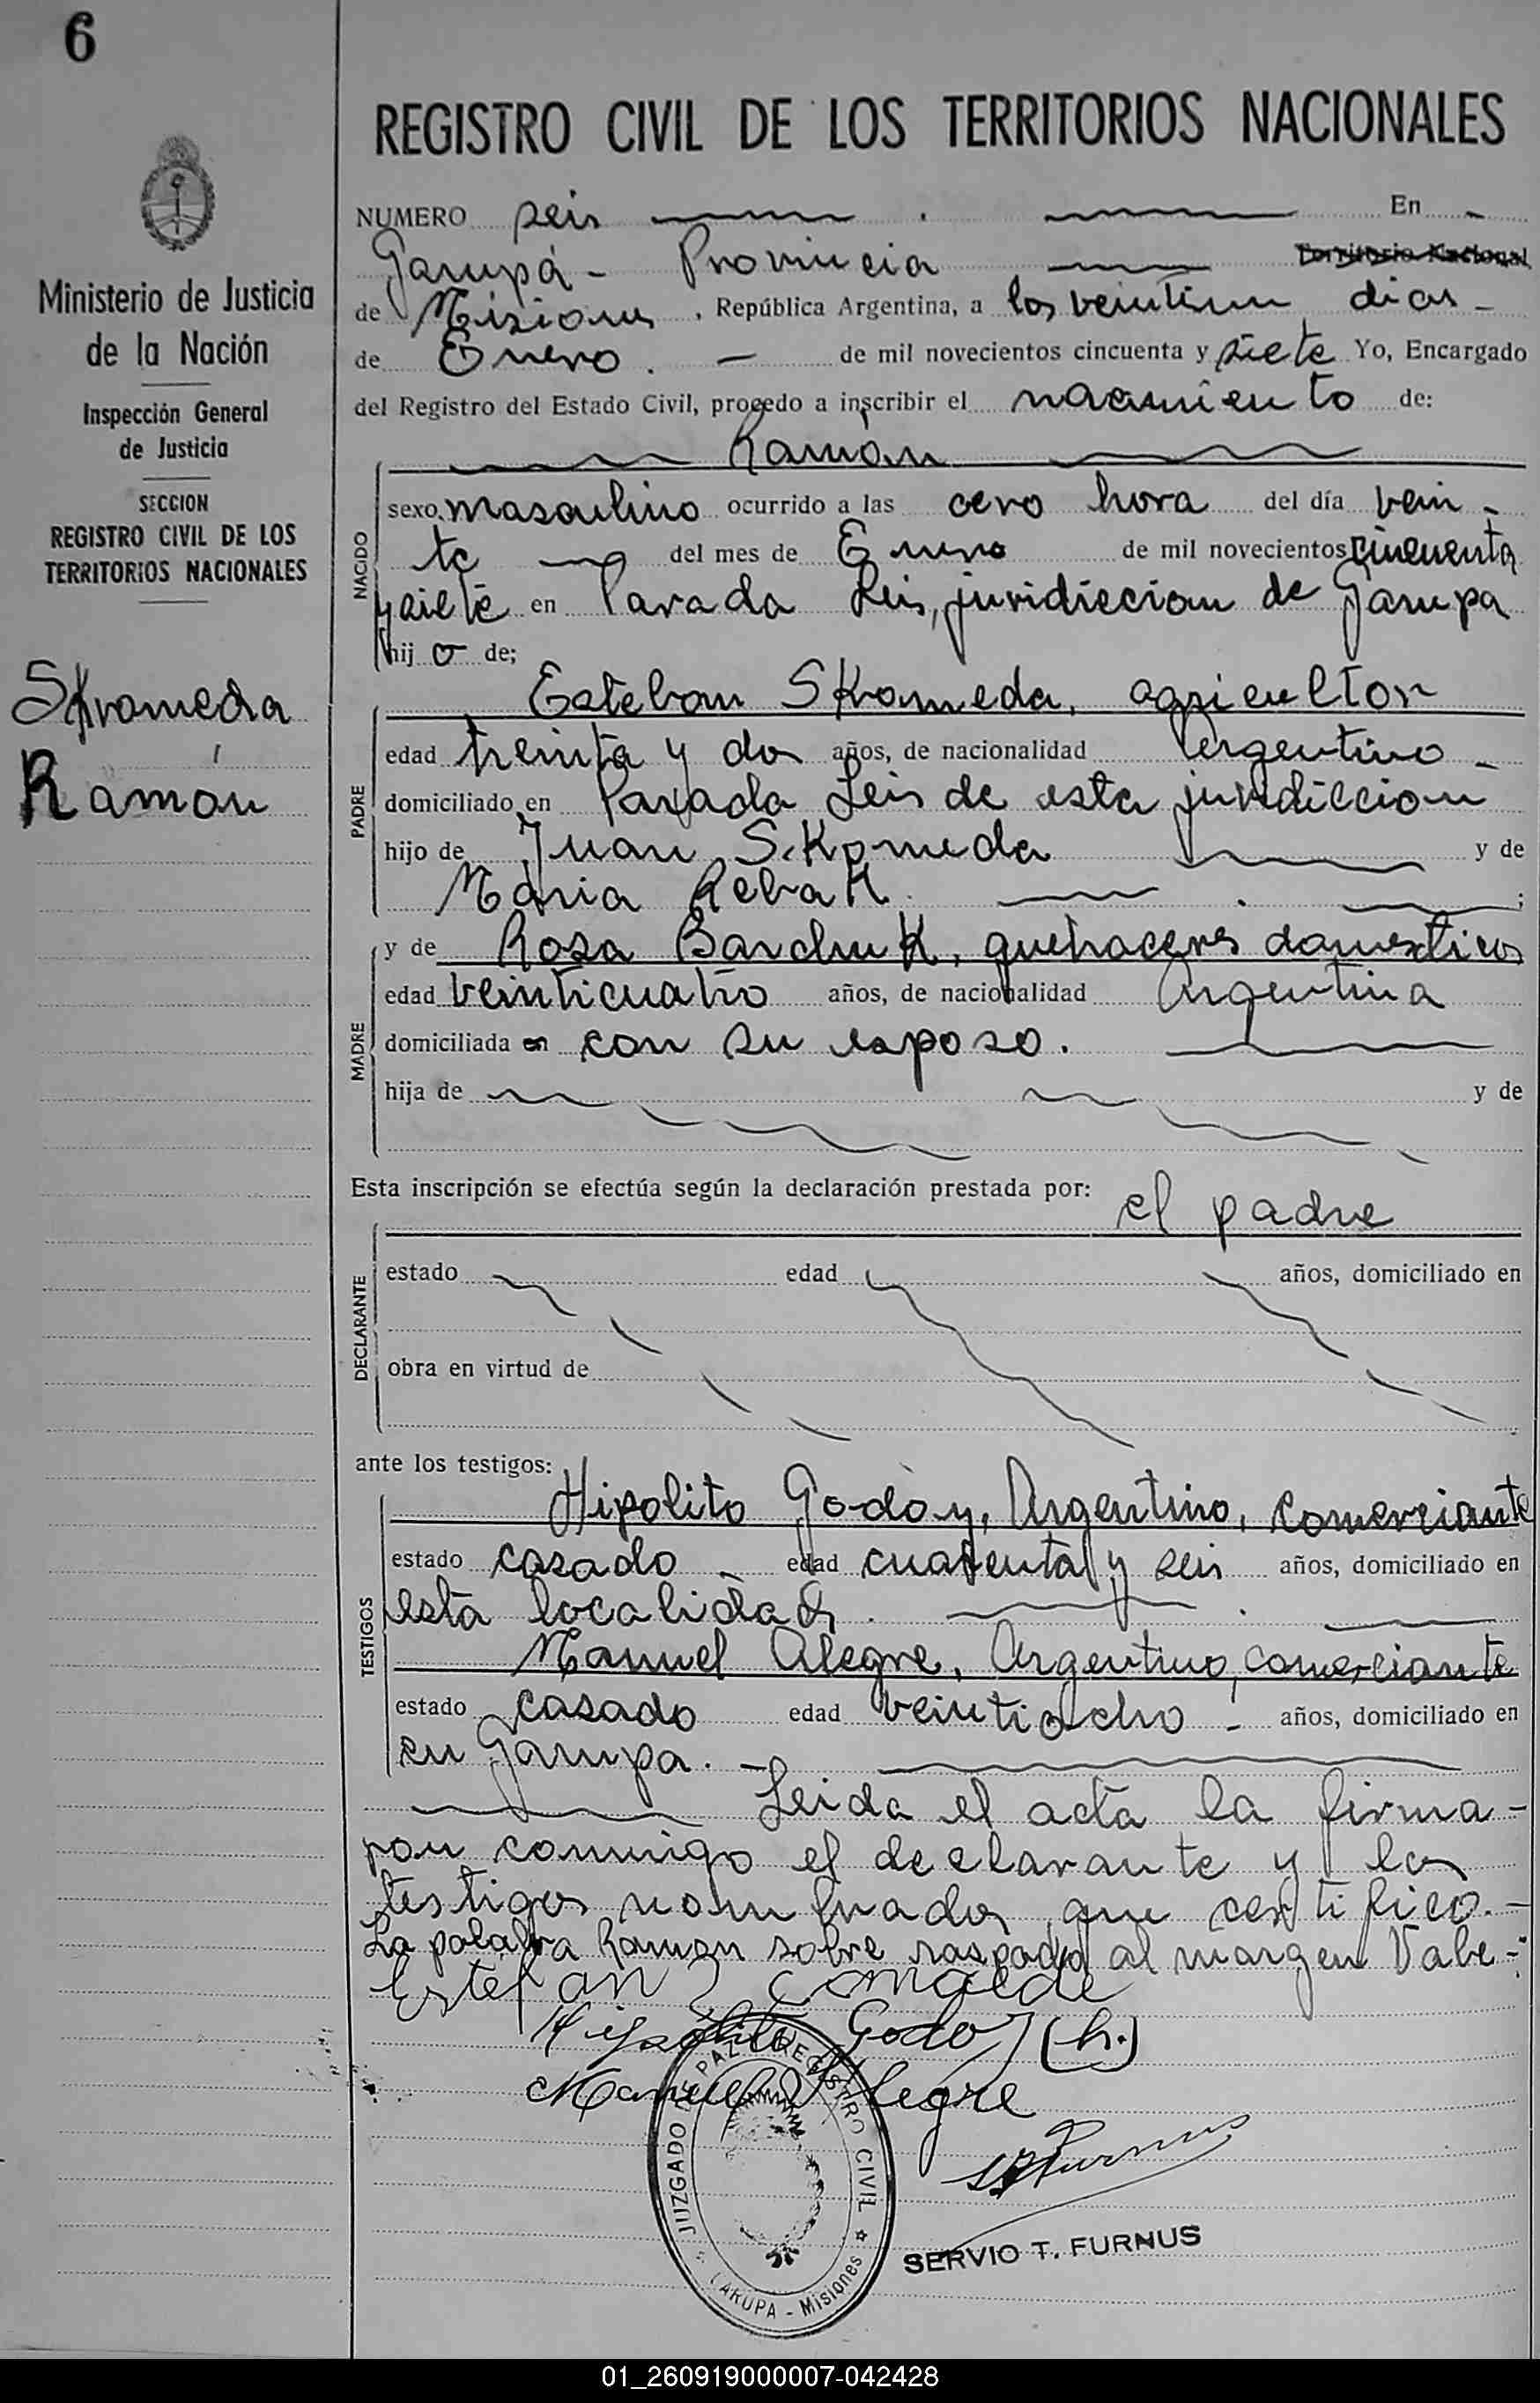 6
REGISTRO CIVIL DE LOS TERRITORIOS NACIONALES
Ministerio de Justicia
de la Nación
Inspección General
de Justicia
SECCION
REGISTRO CIVIL DE LOS
TERRITORIOS NACIONALES
Skromeda
Ramón
NUMERO seis En
Garupá - Provincia Territorio Nacional
de Misiones, República Argentina, a los veintiun dias -
de Enero. - de mil novecientos cincuenta y siete Yo, Encargado
del Registro del Estado Civil, procedo a inscribir el nacimiento de:
Ramón
NACIDO
sexo masculino ocurrido a las cero hora del día vein -
te del mes de Enero de mil novecientos cincuenta
y siete en Parada Leis, juridiccion de Garupa
hij o de;
Esteban Skromeda, agricultor
PADRE
edad treinta y dos años, de nacionalidad Argentino -
domiciliado en Parada Leis de esta juridiccion
hijo de Juan Skomeda y de
Maria Rebak ;
y de Rosa Barchuk, quehaceres domesticos
MADRE
edad veinticuatro años, de nacionalidad Argentina
domiciliada en con su esposo.
hija de y de
Esta inscripción se efectúa según la declaración prestada por: el padre
DECLARANTE
estado edad años, domiciliado en
obra en virtud de
ante los testigos:
Hipolito Godoy, Argentino, comerciante
TESTIGOS
estado casado - edad cuarenta y seis años, domiciliado en
esta localidad.
Manuel Alegre, Argentino, comerciante
estado casado edad veintiocho - años, domiciliado en
en Garupa. -
Leida el acta la firma -
ron conmigo el declarante y los
testigos nombrados, que certifico. -
La palabra Ramon sobre raspado al margen Vale -
Estefan
Hipolito Godoy (h.)
Manuel Alegre
JUZGADO DE PAZ Y REGISTRO CIVIL
GARUPA - Misiones
SERVIO T. FURNUS
01_260919000007-042428